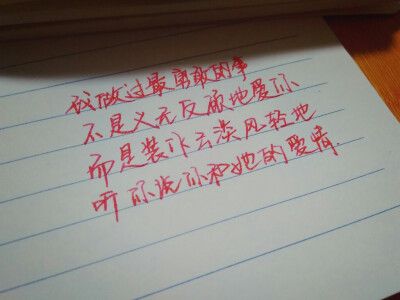 我做过最勇敢的事
不是义无反顾地爱你
而是装作云淡风轻地
听你说你和她的爱情.